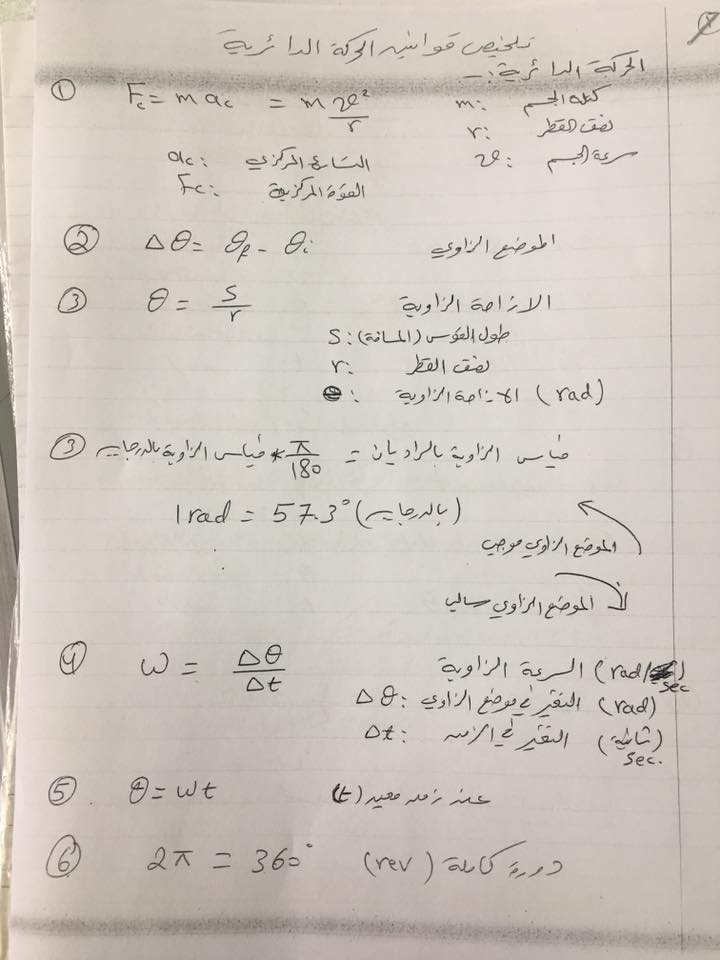 تلخيص قوانين الحركة الدائرية
الحركة الدائرية :-
① Fc = m ac = m v²/r
m: كتلة الجسم
r: نصف القطر
v: سرعة الجسم
ac: التسارع المركزي
Fc: القوة المركزية
② Δθ = θf - θi الموضع الزاوي
③ θ = S/r الازاحة الزاوية
S: طول القوس (المسافة)
r: نصف القطر
θ: الازاحة الزاوية (rad)
③ قياس الزاوية بالراديان = π/180 * قياس الزاوية بالدرجات
1 rad = 57.3° (بالدرجات)
الموضع الزاوي موجب
الموضع الزاوي سالب
④ ω = Δθ/Δt السرعة الزاوية (rad/sec)
Δθ: التغير في موضع الزاوي (rad)
Δt: التغير في الزمن (ثانية) sec.
⑤ θ = ωt عند زمن معين (t)
⑥ 2π = 360° دورة كاملة (rev)